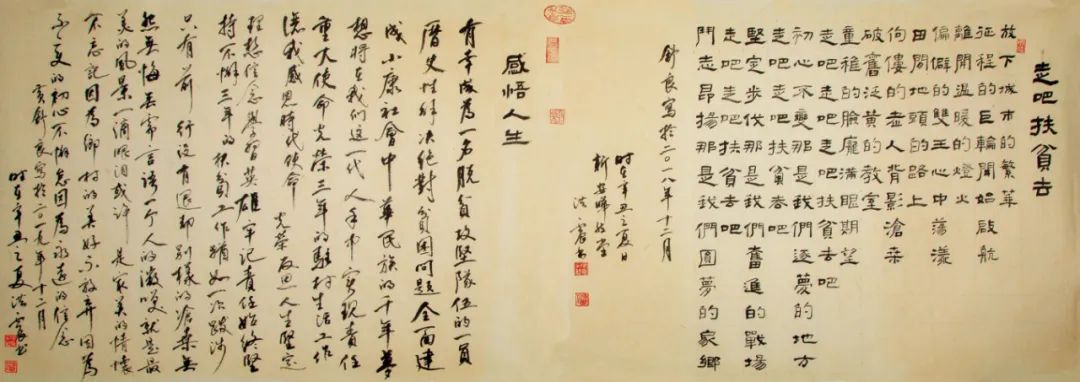 走吧扶貧去
放下城市的繁華
征程的巨輪開始啟航
離開溫暖的燈火
偏僻的雙王心中蕩漾
田間地頭的路上
佝僂的老人背影滄桑
破舊泛黃的教室
童稚的臉龐滿眼期望
走吧走吧走吧扶貧去吧
初心不變那是我們逐夢的地方
走吧走吧扶貧去吧
堅定步伐那是我們奮進的戰場
走吧走吧扶貧去吧
鬥志昂揚那是我們圓夢的家鄉
舒良寫於二〇一八年十二月
時在辛丑之夏日
新安 堂
法震書
感悟人生
有幸成為一名脫貧攻堅隊伍的一員
曆史性解決絕對貧困問題全面建
成小康社會中華民族的千年夢
想將在我們這一代人手中實現責任
重大使命光榮三年的駐村生活工作
讓我感恩時代使命光榮反思人生堅定
理想信念學習英雄牢記責任始終堅
持不懈三年的扶貧工作猶如一次跋涉
只有前行沒有退卻別樣的滄桑無
然無悔無需言語一個人的微笑就是最
美的風景一滴眼淚或許是家美的情懷
不忘記因為鄉村的美好不放棄因為
不變的初心不懈怠因為永遠的信念
黃舒良寫於二〇一九年十二月
時在辛丑之夏法震書